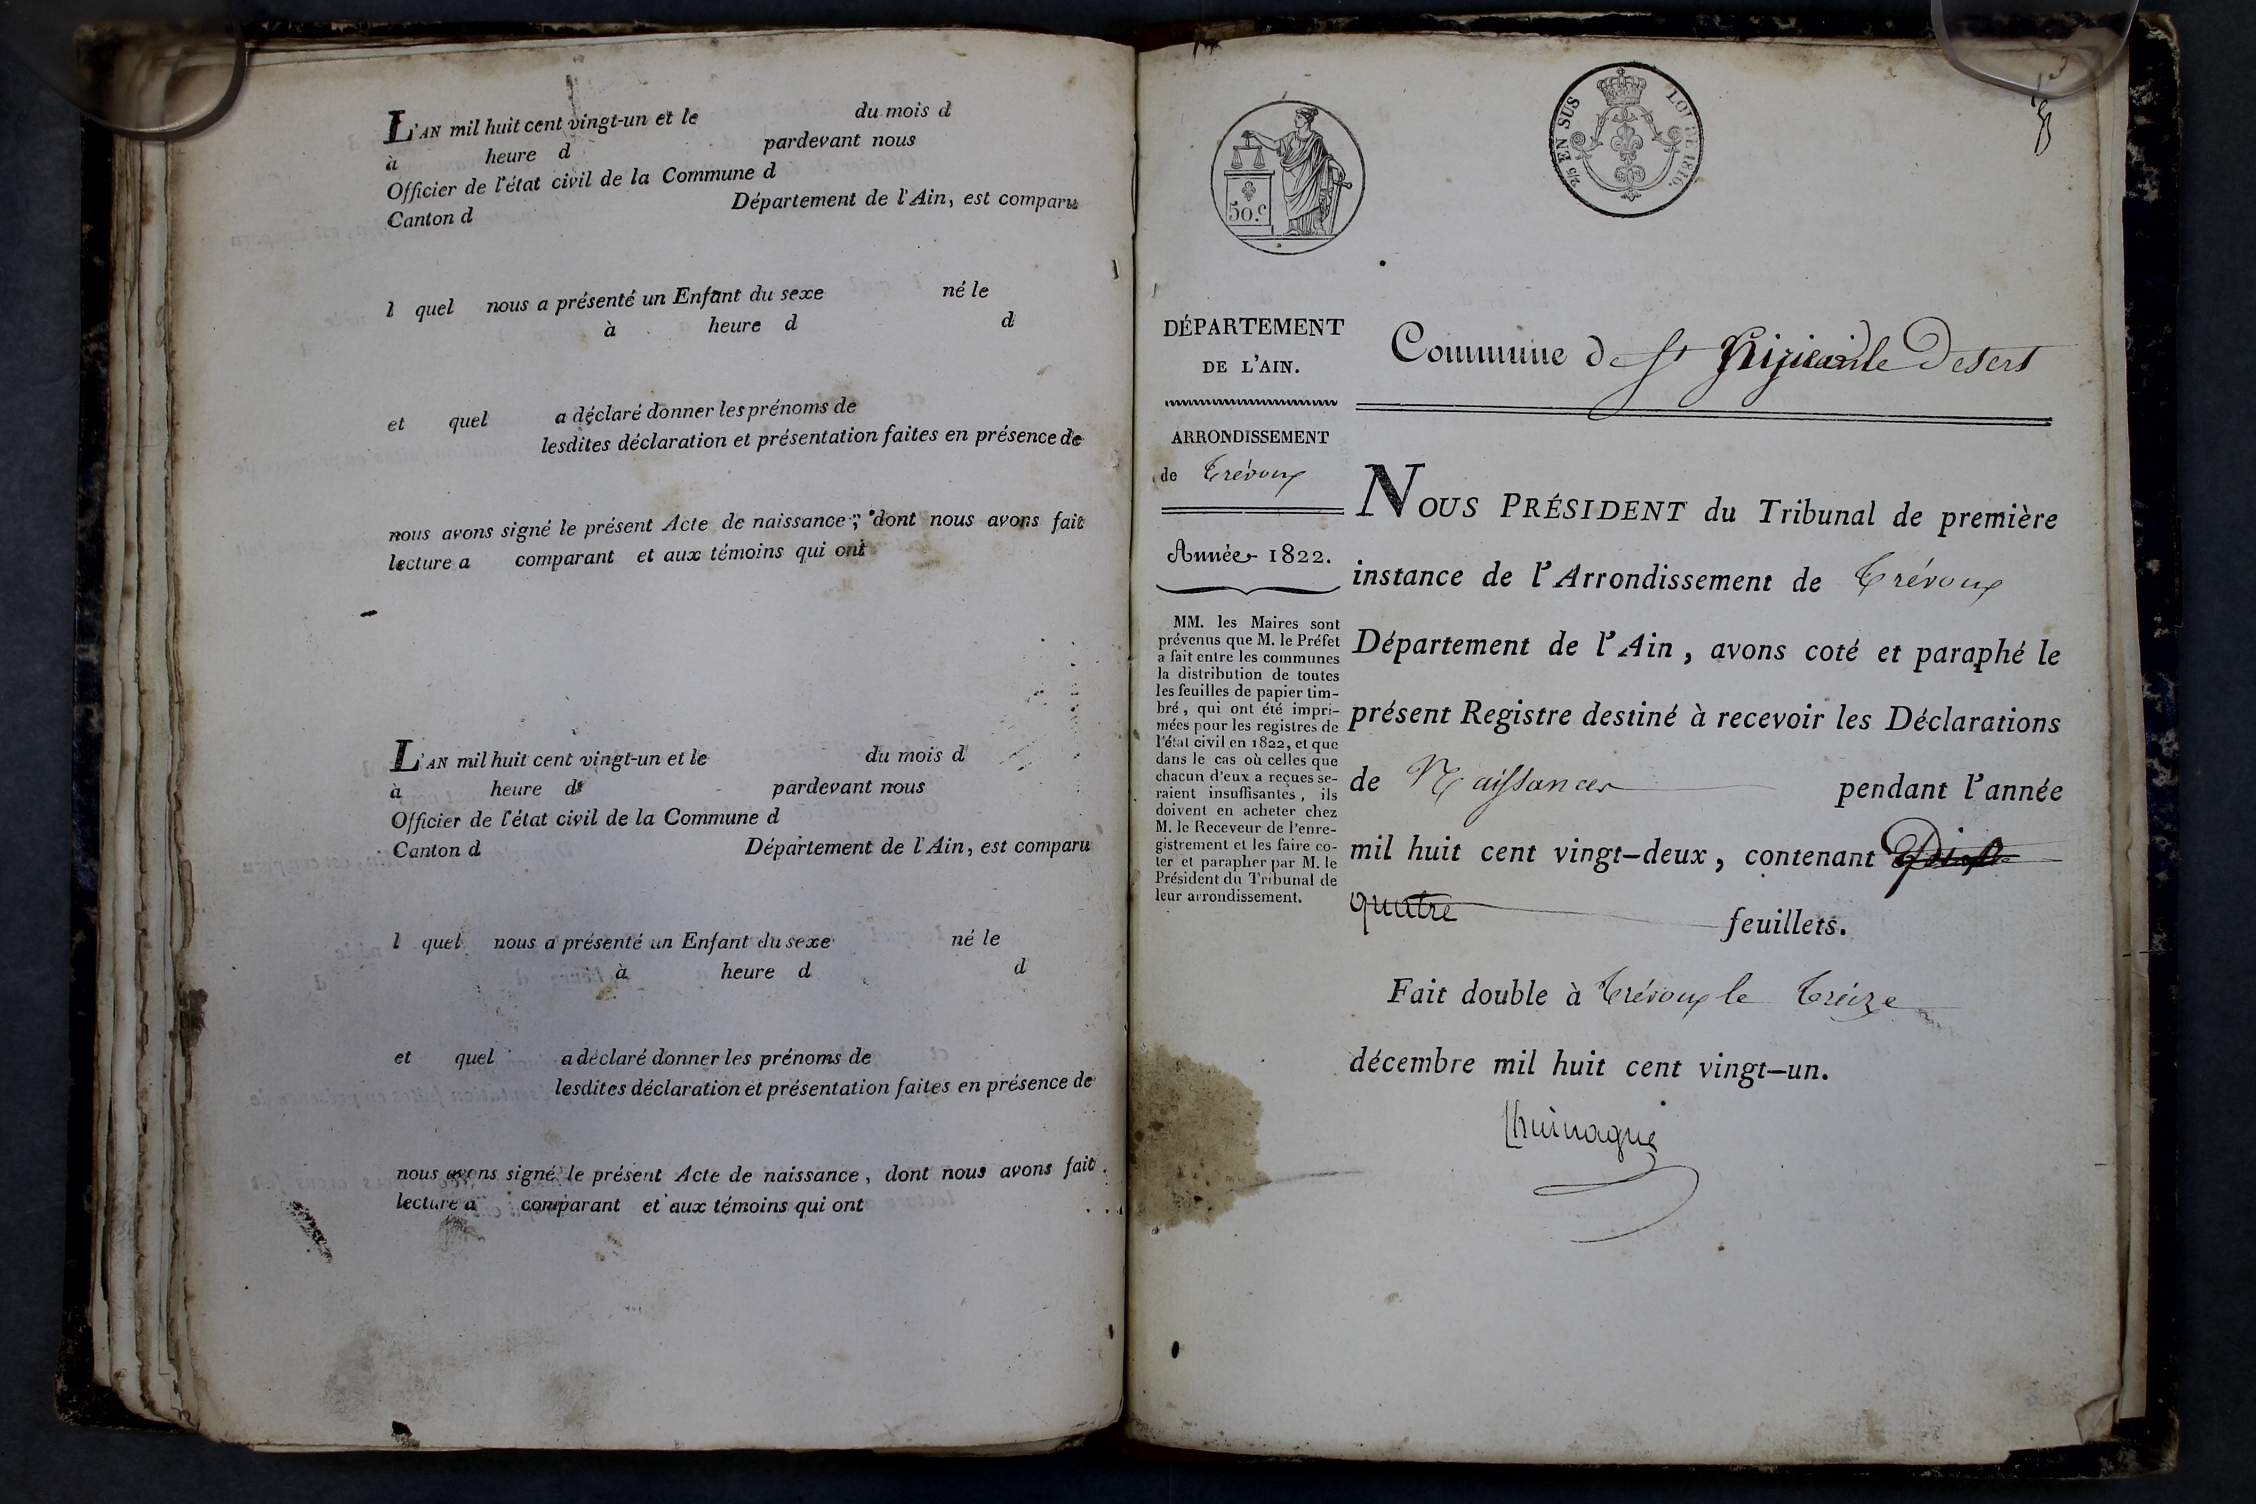 L'AN mil huit cent vingt-un et le du mois d
à heure d pardevant nous
Officier de l'état civil de la Commune d
Canton d Département de l'Ain, est comparu
l quel nous a présenté un Enfant du sexe né le
à heure d d
et quel a déclaré donner les prénoms de
lesdites déclaration et présentation faites en présence de
nous avons signé le présent Acte de naissance, dont nous avons fait
lecture a comparant et aux témoins qui ont
L'AN mil huit cent vingt-un et le du mois d
à heure d pardevant nous
Officier de l'état civil de la Commune d
Canton d Département de l'Ain, est comparu
l quel nous a présenté un Enfant du sexe né le
à heure d d
et quel a déclaré donner les prénoms de
lesdites déclaration et présentation faites en présence de
nous avons signé le présent Acte de naissance, dont nous avons fait
lecture a comparant et aux témoins qui ont
50.c
2/5 EN SUS LOI DE 1816.
DÉPARTEMENT
DE L'AIN.
ARRONDISSEMENT
de Trévoux
Année 1822.
MM. les Maires sont
prévenus que M. le Préfet
a fait entre les communes
la distribution de toutes
les feuilles de papier tim-
bré, qui ont été impri-
mées pour les registres de
l'état civil en 1822, et que
dans le cas où celles que
chacun d'eux a reçues se-
raient insuffisantes, ils
doivent en acheter chez
M. le Receveur de l'enre-
gistrement et les faire co-
ter et parapher par M. le
Président du Tribunal de
leur arrondissement.
Commune de St le Desert
NOUS PRÉSIDENT du Tribunal de première
instance de l'Arrondissement de Trévoux
Département de l'Ain, avons coté et paraphé le
présent Registre destiné à recevoir les Déclarations
de Naissances pendant l'année
mil huit cent vingt-deux, contenant
quatre feuillets.
Fait double à Trévoux le Treize
décembre mil huit cent vingt-un.